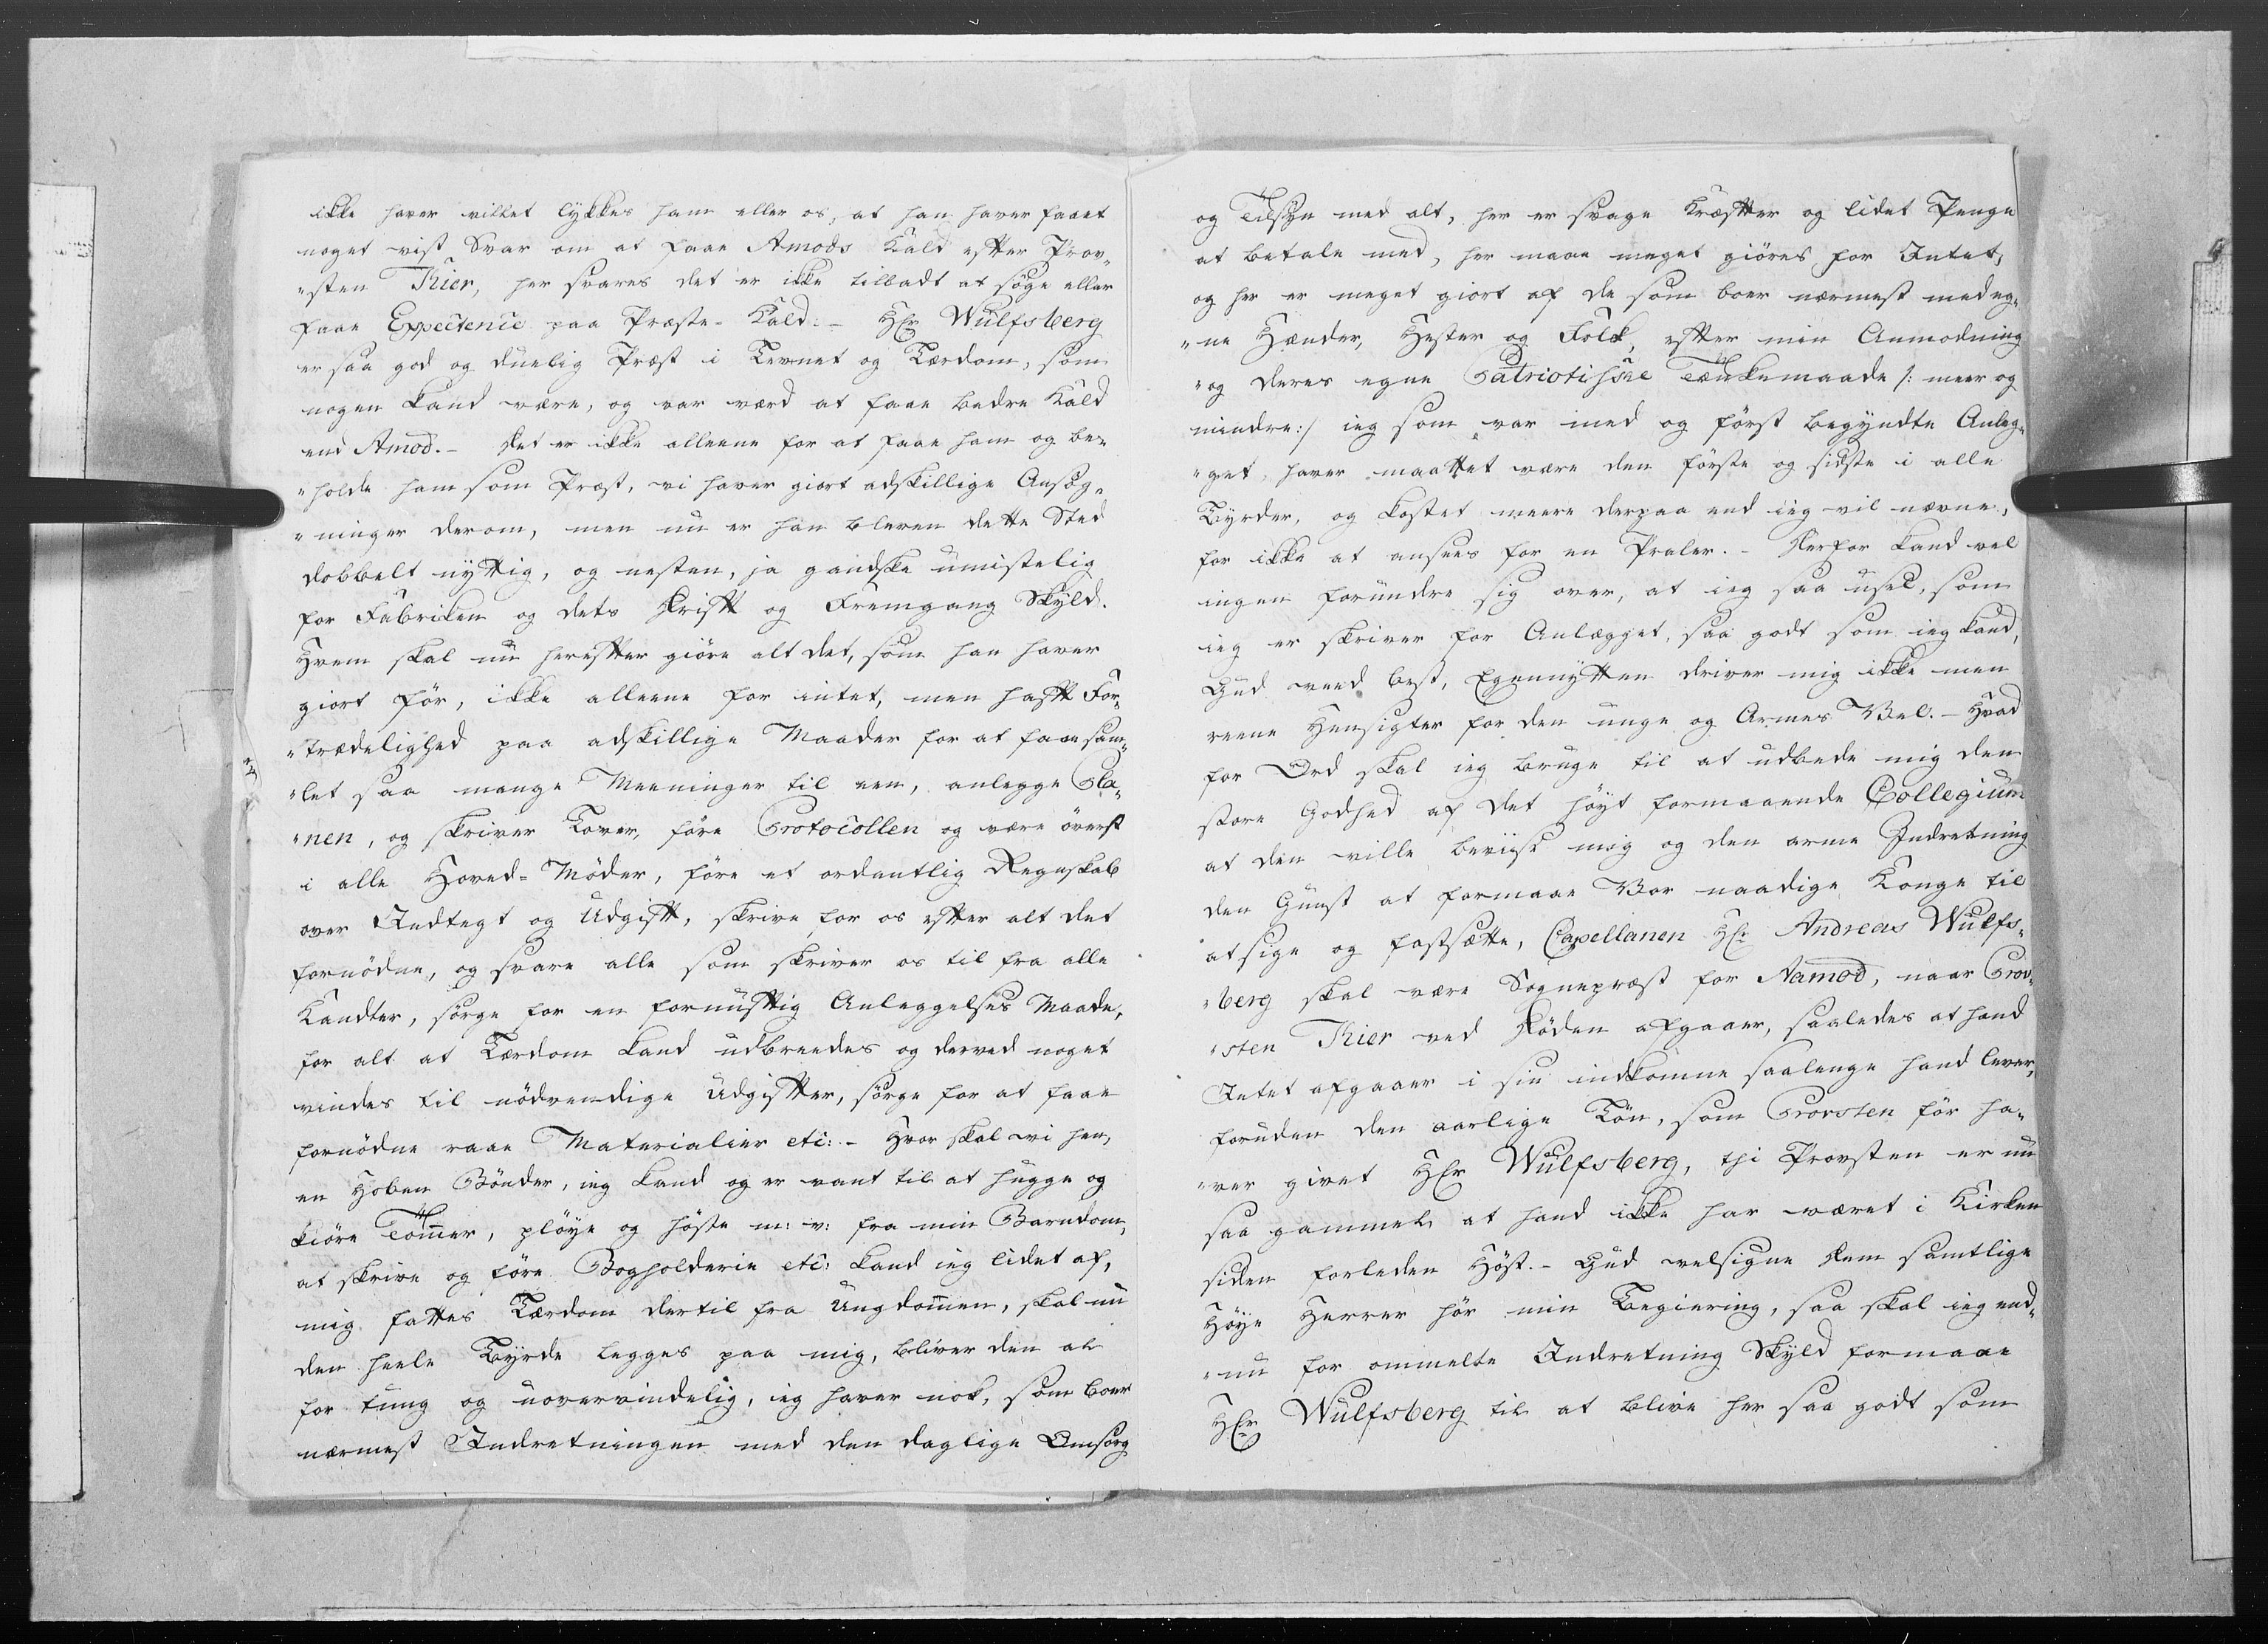 ikke haver villet lykkes ham eller os, at han haver faaet
noget vist Svar om at faae Amods Kald efter Prov„
„sten Kier, her svares det er ikke tilladt at søge eller
faae Expectence paa Præste-Kald:- Hr Wulfsberg
er saa god og duelig Præst i Levnet og Lærdom, som
nogen kand være, og var værd at faae bedre Kald
end Amod.- Det er ikke alleene for at faae ham og be„
„holde ham som Præst, vi haver giort adskillige Ansøg„
„ninger derom, men nu er han bleven dette Sted
dobbelt nyttig, og nesten, ja gandske umistelig
for Fabriken og dets Drift og Fremgang Skyld.
Hvem skal nu herefter giøre alt det, som han haver
giort før, ikke alleene for intet, men haft For„
„trædelighed paa adskillige Maader for at faae sam„
„let saa mange Meeninger til een, anlegge Pla„
„nen, og skriver Lover, føre Protocollen og være øverst
i alle Hoved-Møder, føre et ordentlig Regnskab
over Indtegt og Udgift, skrive for os efter alt det
fornødne, og svare alle som skriver os til fra alle
Kandter, sørge for en fornuftig Anleggelses Maade,
for alt at Lærdom kand udbreedes og derved noget
vindes til nødvendige Udgifter, sørge for at faae
fornødne raae Materialier etc:- Hvor skal vi hen,
en Hoben Bønder, ieg kand og er vant til at hugge og
kiøre Tømmer, pløye og høste m: v: fra min Barndom,
at skrive og føre Bogholderie etc: kand ieg lidet af,
mig fattes Lærdom dertil fra Ungdommen, skal nu
den heele Byrde legges paa mig, bliver den al
for tung og uovervindelig, ieg haver nok, som boer
nærmest Indretningen med den daglige Omsorg
og Tilsyn med alt, her er svage Kræfter og lidet Penge
at betale med, her maae meget giøres for Intet,
og her er meget giort af de som boer nærmest med eg„
„ne Hænder, Hester og Folk, efter min Anmodning
„og deres egne Patriotiske Tænkemaade /: meer og
mindre:/ ieg som var med og først begyndte Anleg„
„get, haver maattet være den første og sidste i alle
Byrder, og kostet meere derpaa end ieg vil nævne,
for ikke at ansees for en Praler.- Derfor kand vel
ingen forundre sig over, at ieg saa usel, som
ieg er skriver for Anlægget, saa godt som ieg kand,
Gud veed best, Egennytten driver mig ikke men
reene Hensigter for den unge og Armes Vel.- Hvad
for Ord skal ieg bruge til at udbede mig den
store Godhed af det høyt formaaende Collegium
at den ville beviise mig og den arme Indretning
den Gunst at formaae Vor naadige Konge til
at sige og fastsætte, Capellanen Hr Andreas Wulfs„
„berg skal være Sognepræst for Aamod, naar Prov„
„sten Kier ved Døden afgaaer, saaledes at hand
Intet afgaaer i sin indkomne saalenge hand lever,
foruden den aarlige Løn, som Provsten før ha„
„ver givet Hr Wulfsberg, thi Provsten er nu
saa gammel at hand ikke har været i Kirken
siden forleden Høst.- Gud velsigne Dem samtlige
Høye Herrer hør min Begiering, saa skal ieg end„
„nu for ommelte Indretning Skyld formaae
Hr Wulfsberg til at blive her saa godt som